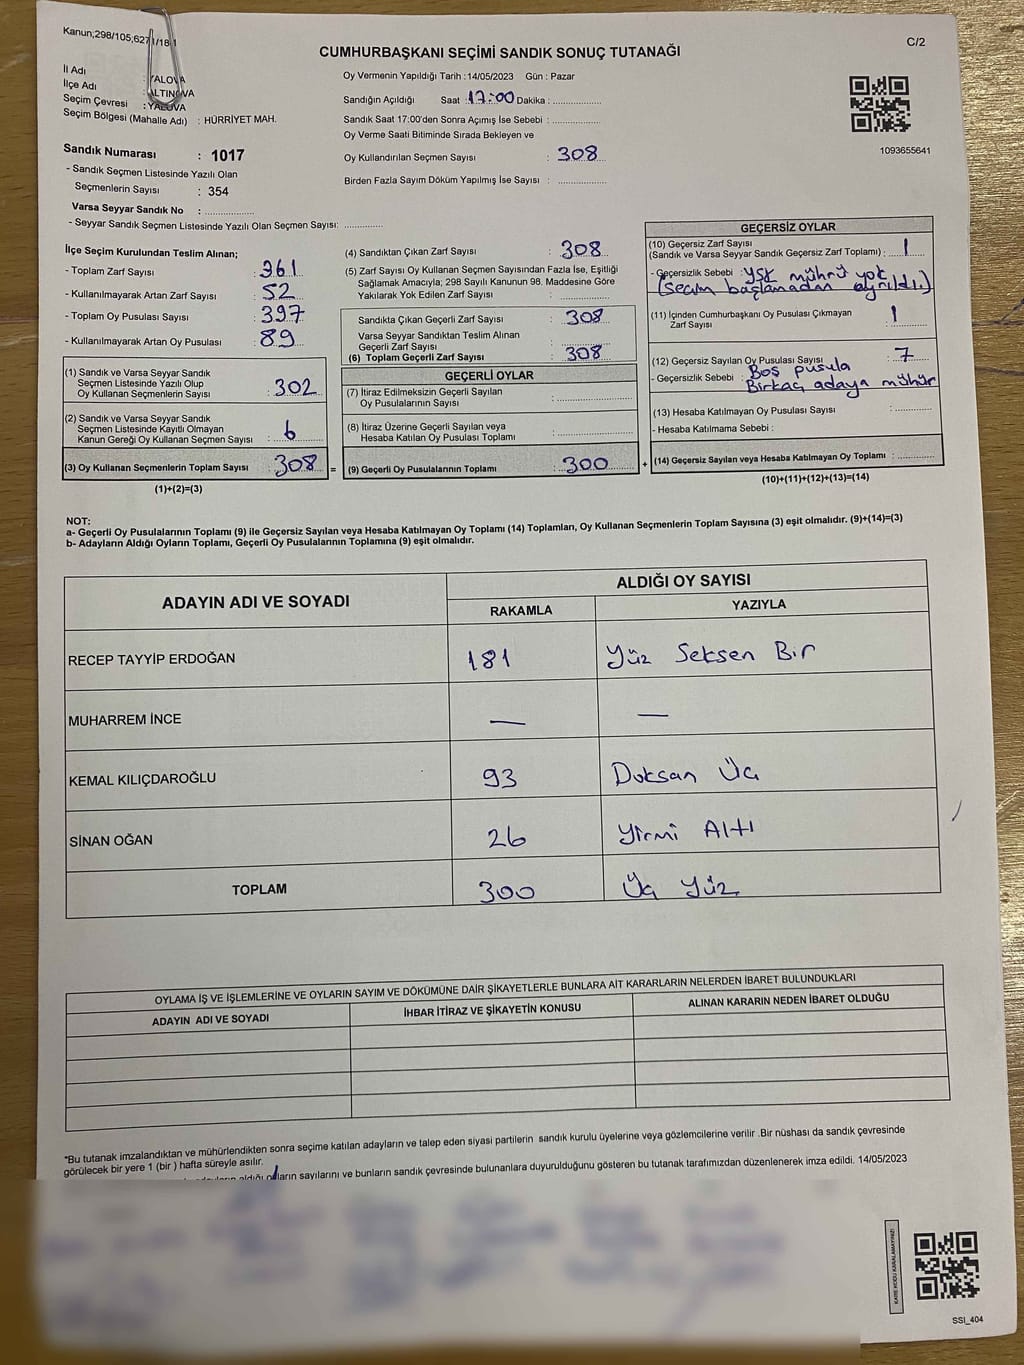 Kanun;298/105,627
C/2
CUMHURBAŞKANI SEÇİMİ SANDIK SONUÇ TUTANAĞI
İl Adı : YALOVA
İlçe Adı : ALTINOVA
Seçim Çevresi : YALOVA
Seçim Bölgesi (Mahalle Adı) : HÜRRİYET MAH.
Oy Vermenin Yapıldığı Tarih :14/05/2023 Gün : Pazar
Sandığın Açıldığı Saat : 17:00 Dakika : ....................
Sandık Saat 17:00'den Sonra Açımış İse Sebebi : ....................
Oy Verme Saati Bitiminde Sırada Bekleyen ve
Oy Kullandırılan Seçmen Sayısı : 308
Birden Fazla Sayım Döküm Yapılmış İse Sayısı : ....................
1093655641
Sandık Numarası : 1017
- Sandık Seçmen Listesinde Yazılı Olan
Seçmenlerin Sayısı : 354
Varsa Seyyar Sandık No : ....................
- Seyyar Sandık Seçmen Listesinde Yazılı Olan Seçmen Sayısı: ................
İlçe Seçim Kurulundan Teslim Alınan;
- Toplam Zarf Sayısı : 361
- Kullanılmayarak Artan Zarf Sayısı : 52
- Toplam Oy Pusulası Sayısı : 397
- Kullanılmayarak Artan Oy Pusulası : 89
(1) Sandık ve Varsa Seyyar Sandık
Seçmen Listesinde Yazılı Olup
Oy Kullanan Seçmenlerin Sayısı : 302
(2) Sandık ve Varsa Seyyar Sandık
Seçmen Listesinde Kayıtlı Olmayan
Kanun Gereği Oy Kullanan Seçmen Sayısı : 6
(3) Oy Kullanan Seçmenlerin Toplam Sayısı : 308 =
(1)+(2)=(3)
(4) Sandıktan Çıkan Zarf Sayısı : 308
(5) Zarf Sayısı Oy Kullanan Seçmen Sayısından Fazla İse, Eşitliği
Sağlamak Amacıyla; 298 Sayılı Kanunun 98. Maddesine Göre
Yakılarak Yok Edilen Zarf Sayısı : ................
Sandıkta Çıkan Geçerli Zarf Sayısı : 308
Varsa Seyyar Sandıktan Teslim Alınan
Geçerli Zarf Sayısı : ................
(6) Toplam Geçerli Zarf Sayısı : 308
GEÇERLİ OYLAR
(7) İtiraz Edilmeksizin Geçerli Sayılan
Oy Pusulalarının Sayısı : ....................
(8) İtiraz Üzerine Geçerli Sayılan veya
Hesaba Katılan Oy Pusulası Toplamı : ....................
(9) Geçerli Oy Pusulalarının Toplamı : 300 +
GEÇERSİZ OYLAR
(10) Geçersiz Zarf Sayısı
(Sandık ve Varsa Seyyar Sandık Geçersiz Zarf Toplamı) : 1
- Geçersizlik Sebebi : YSK mührü yok
(seçim başlamadan ayrıldı.)
(11) İçinden Cumhurbaşkanı Oy Pusulası Çıkmayan
Zarf Sayısı : 1
(12) Geçersiz Sayılan Oy Pusulası Sayısı : 7
- Geçersizlik Sebebi : Boş pusula
Birkaç adaya mühür
(13) Hesaba Katılmayan Oy Pusulası Sayısı : ............
- Hesaba Katılmama Sebebi :
(14) Geçersiz Sayılan veya Hesaba Katılmayan Oy Toplamı : ............
(10)+(11)+(12)+(13)=(14)
NOT:
a- Geçerli Oy Pusulalarının Toplamı (9) ile Geçersiz Sayılan veya Hesaba Katılmayan Oy Toplamı (14) Toplamları, Oy Kullanan Seçmenlerin Toplam Sayısına (3) eşit olmalıdır. (9)+(14)=(3)
b- Adayların Aldığı Oyların Toplamı, Geçerli Oy Pusulalarının Toplamına (9) eşit olmalıdır.
ADAYIN ADI VE SOYADI
ALDIĞI OY SAYISI
RAKAMLA YAZIYLA
RECEP TAYYİP ERDOĞAN 181 Yüz Seksen Bir
MUHARREM İNCE — —
KEMAL KILIÇDAROĞLU 93 Doksan Üç
SİNAN OĞAN 26 Yirmi Altı
TOPLAM 300 Üç Yüz
OYLAMA İŞ VE İŞLEMLERİNE VE OYLARIN SAYIM VE DÖKÜMÜNE DAİR ŞİKAYETLERLE BUNLARA AİT KARARLARIN NELERDEN İBARET BULUNDUKLARI
ADAYIN ADI VE SOYADI İHBAR İTİRAZ VE ŞİKAYETİN KONUSU ALINAN KARARIN NEDEN İBARET OLDUĞU
*Bu tutanak imzalandıktan ve mühürlendikten sonra seçime katılan adayların ve talep eden siyasi partilerin sandık kurulu üyelerine veya gözlemcilerine verilir .Bir nüshası da sandık çevresinde
görülecek bir yere 1 (bir ) hafta süreyle asılır.
aldığı oyların sayılarını ve bunların sandık çevresinde bulunanlara duyurulduğunu gösteren bu tutanak tarafımızdan düzenlenerek imza edildi. 14/05/2023
KARE KODU KARALAMAYINIZ!
SSI_404